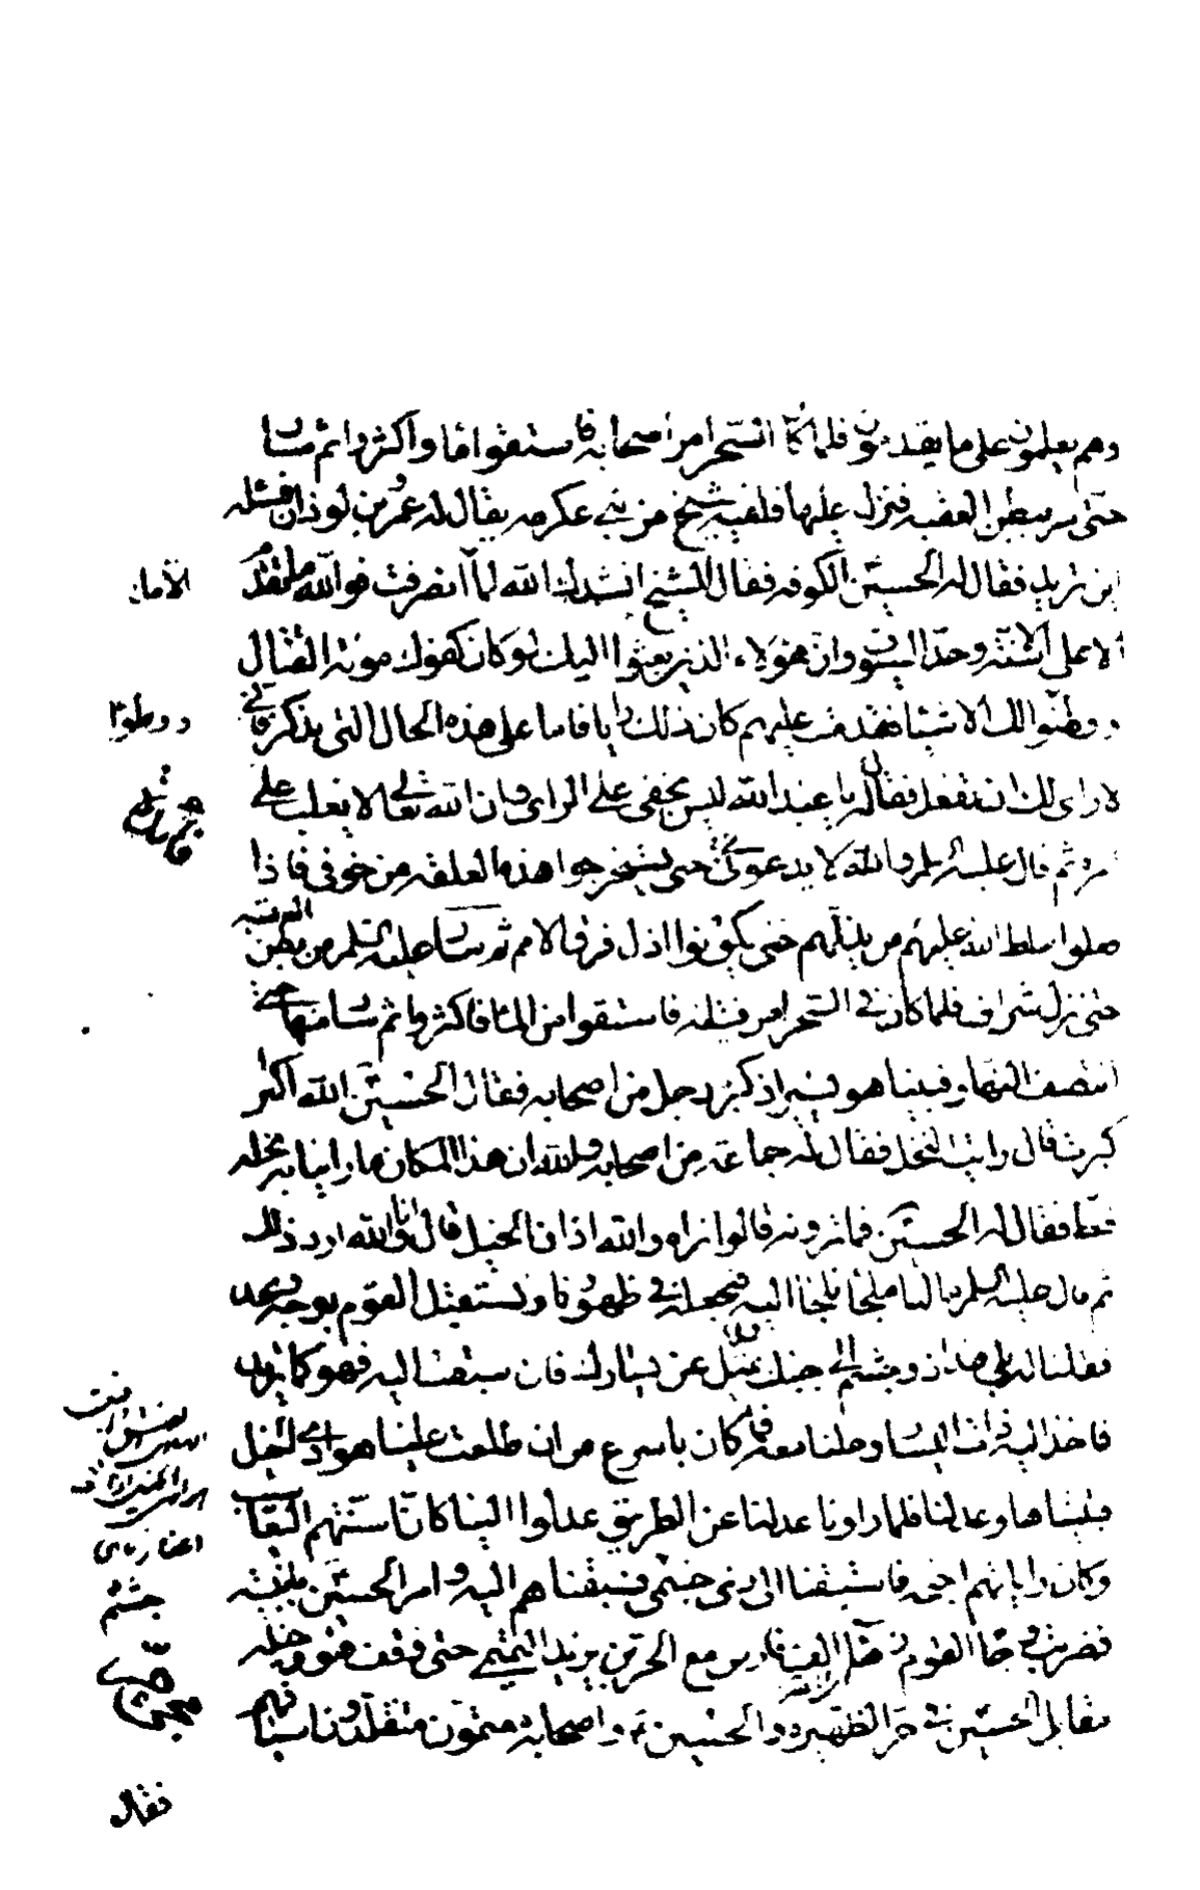 وهم يعلمون على ما يقدمون فلما كان السحر امر اصحابه فاستقوا ماء واكثروا ثم سار
حتى مر ببطن العقبه فنزل عليها فلقيه شيخ من بنى عكرمه يقال له عمرو بن لوذان فسئله
اين تريد فقال له الحسين الكوفه فقال الشيخ انشدك الله لما انصرفت فوالله ما تقدم
الا على الاسنه وحد السيوف وان هؤلاء الذين بعثوا اليك لو كان كفوك مونه القتال
ووطئوا لك الاشياء فقدمت عليهم كان ذلك رايا فاما على هذه الحال التى تذكر فانى
لا ارى لك ان تفعل فقال يا عبد الله ليس يخفى على الراى وان الله تعالى لا يغلب على
امره ثم قال عليه السلم والله لا يدعونى حتى يستخرجوا هذه العلقه من جوفى فاذا
فعلوا سلط الله عليهم من يذلهم حتى يكونوا اذل فرق الامم ثم سار عليه السلم من بطن العقبه
حتى نزل شراف فلما كان فى السحر امر فتيانه فاستقوا من الماء فاكثروا ثم سار منها حتى
انتصف النهار فبينا هو يسير اذ كبر رجل من اصحابه فقال الحسين الله اكبر
كبرت قال رايت النخل فقال له جماعه من اصحابه والله ان هذا المكان ما راينا به نخله
قط فقال له الحسين فما ترونه قالوا نراه والله اذان الخيل قال وانا والله ارى ذلك
ثم قال عليه السلم ما لنا ملجأ نلجأ اليه فنجعله فى ظهورنا ونستقبل القوم بوجه واحد
فقلنا له بلى هذا ذو جشم الى جنبك تميل عن يسارك فان سبقت اليه فهو كما تريد
فاخذ اليه ذات اليسار وملنا معه فما كان باسرع من ان طلعت علينا هوادى الخيل
فتبيناها وعدلنا فلما راونا عدلنا عن الطريق عدلوا الينا كان اسنتهم اليعاسيب
وكان راياتهم اجنحه فاستبقنا الى ذى جشم فسبقناهم اليه وامر الحسين بابنيته
فضربت وجاء القوم زهاء الف فارس مع الحر بن يزيد التميمى حتى وقف هو وخيله
مقابل الحسين فى حر الظهيره والحسين واصحابه معتمون متقلدون اسيافهم
الاما
ووطئوا
جشم
فقال